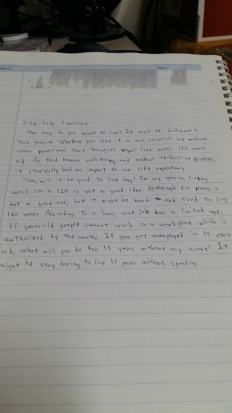 life expectancy
How long do you want to live? It must be different
each person. Whether you like it or not, scientists and medical
almost people might live until 120 years
old. As food becomes well-being and medical technology develops,
it straightly had an impact to our life expectancy.
Then, will it be good to live long? In my opinion, living
until 100 to 120 is not a good idea. Although
not a good one, but it might be hard and tired to live
120 years. According to a law, most job has a limited age.
65 years old people cannot work in a workplace which is
authorized by the country. If you get unemployed in 65 years
old, what will you do for 55 years without any income? It
might be very boring to live 55 years without spending